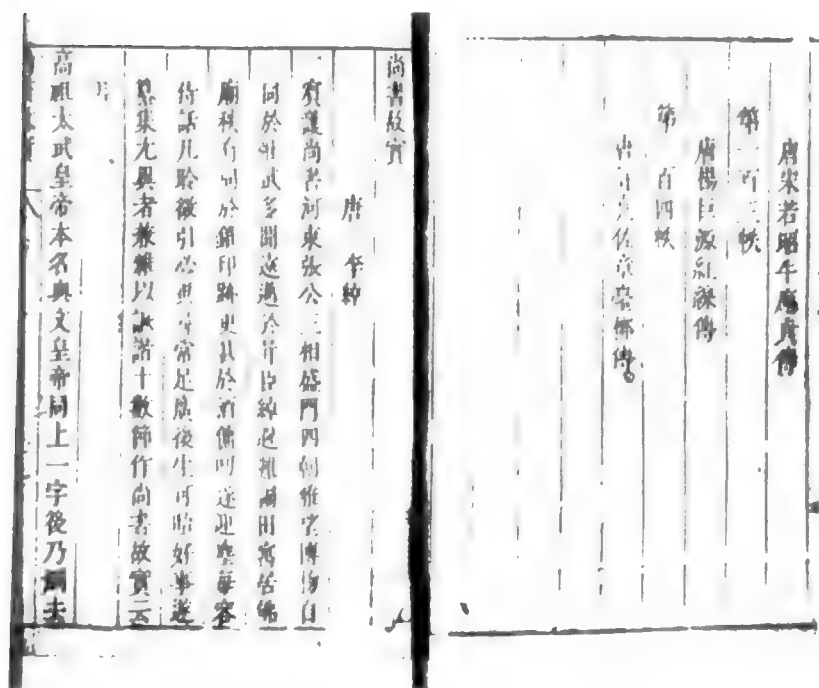 唐宋若昭牛應貞傳
第一百三帙
唐楊巨源紅線傳
第一百四帙
唐許堯佐章臺柳傳
尚書故實
唐 李綽
賓護尚書河東張公三相盛門四朝雅望博物自
同於壯武多聞遠邁於胥臣綽避難圃田寓居佛
廟秩有同於印跡更甚於酒傭叨遂迎塵每容
侍話凡聆徵引必異尋常足廣後生可貽好事遂
纂集尤異者兼雜以詼諧十數節作尚書故實云
耳
高祖太武皇帝本名與文皇帝同上一字後乃刪去